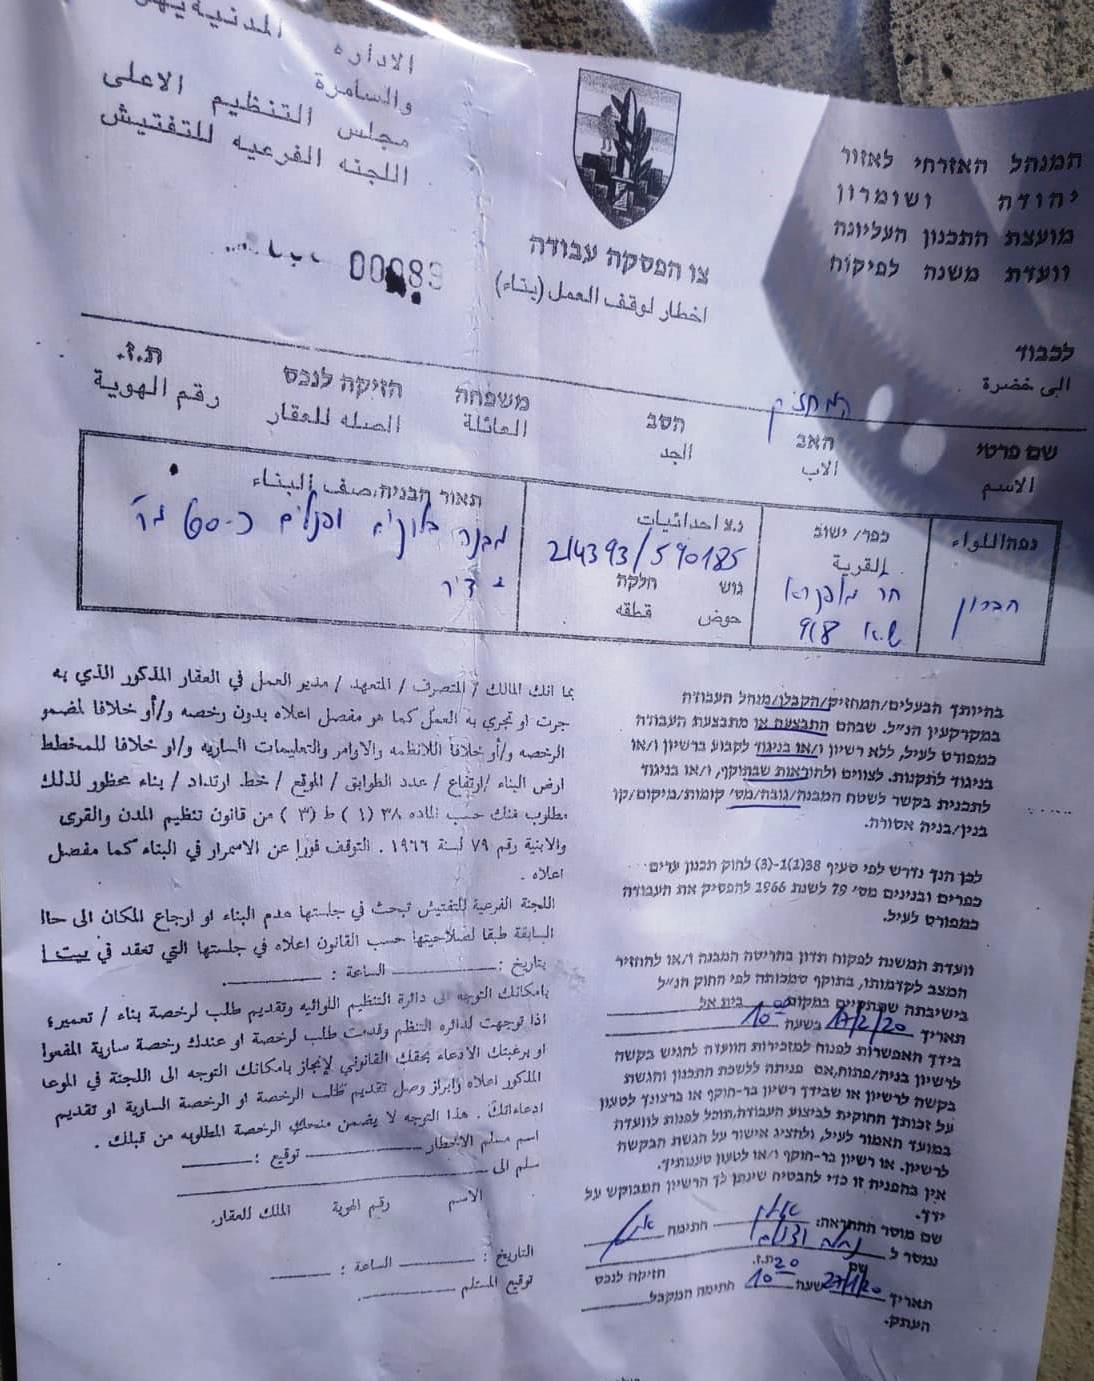 الاداره المدنية
والسامرة
مجلس التنظيم الاعلى
اللجنه الفرعيه للتفتيش
המנהל האזרחי לאזור
יהודה ושומרון
מועצת התכנון העליונה
וועדת משנה לפיקוח
צו הפסקה עבודה
اخطار لوقف العمل (بناء)
לכבוד
الى حضرة
המחזיק
שם פרטי האב הסב משפחה הזיקה לנכס ת.ז.
الاسم الاب الجد العائلة الصله للعقار رقم الهوية
נפה/اللواء
חברון
כפר/ ישוב
القرية
918
נ.צ احداثيات
214393/590185
גוש חלקה
حوض قطعه
תאור הבניה.صف البناء
בחיותך הבעלים/המחזיק/הקבלן/מנהל העבודה
במקרקעין הנ"ל. שבהם התבצעה או מתבצעת העבודה
כמפורט לעיל, ללא רשיון ו/או בניגוד לקבוע ברשיון ו/או
בניגוד לתקנות. לצווים ולהוראות שבתוקף, ו/או בניגוד
לתכנית בקשר לשטח המבנה/גובה/מס' קומות/מיקום/קו
בנין/בניה אסורה.
לכן הנך נדרש לפי סעיף 38(1)ו-(3) לחוק תכנון ערים
כפרים ובנינים מס' 79 לשנת 1966 להפסיק את העבודה
כמפורט לעיל.
וועדת המשנה לפקוח תדון בהריסה המבנה ו/או להחזיר
המצב לקדמותו, בתוקף סמכותה לפי החוק הנ"ל
בישיבתה שתתקיים במקום בית אל
תאריך 17/2/20 בשעה 10:00
בידך האפשרות לפנות למזכירות הוועדה להגיש בקשה
לרשיון בניה/פתוח,אם פניתה ללשכת התכנון והגשת
בקשה לרשיון או שבידך רשיון בר-תוקף או ברצונך לטעון
על זכותך החוקית לביצוע העבודה,תוכל לפנות לוועדה
במועד האמור לעיל, ולהציג אישור על הגשת הבקשה
לרשיון. או רשיון בר-תוקף ו/או לטעון טענותיך.
אין בהפנית זו כדי להבטיח שינתן לך הרשיון המבוקש על
ידך.
שם מוסר ההתראה: חתימה
נמסר ל
שם ת.ז. הזיקה לנכס
תאריך 27/1/20 שעה 10:20 חתימה המקבל
העתק.
بما انك المالك / المتصرف / المتعهد / مدير العمل في العقار المذكور الذي به
جرت او تجري به العمل كما هو مفصل اعلاه بدون رخصه و/أو خلافا لمضمو
الرخصه و/أو خلافا للانظمه والاوامر والتعليمات الساريه و/او خلافا للمخطط
ارض البناء /ارتفاع / عدد الطوابق / الموقع / خط. ارتداد / بناء محظور لذلك
مطلوب منك حسب الماده ٣٨ (١) ط (٣) من قانون تنظيم المدن والقرى
والابنية رقم ٧٩ لسنة ١٩٦٦ . التوقف فورا عن الاسمرار في البناء كما مفصل
اعلاه .
اللجنة الفرعية للتفتيش تبحث في جلستها هدم البناء او ارجاع المكان الى حا
السابقة طبقا لصلاحيتها حسب القانون اعلاه في جلستها التي تعقد في بيت ا
بتاريخ : الساعة :
بامكانك التوجه الى دائرة التنظيم اللوائيه وتقديم طلب لرخصة بناء / تعمير،
اذا توجهت لدائره التنظم وقدمت طلب لرخصة او عندك رخصة سارية المفعوا
او برغبتك الادعاء بحقك القانوني لإنجاز بامكانك التوجه الى اللجنة في الموعا
المذكور اعلاه وابراز وصل تقديم طلب الرخصة او الرخصة السارية او تقديم
ادعاءاتك . هذا التوجه لا يضمن منحك الرخصة المطلوبه من قبلك .
اسم مسلم الاخطار توقيع :
سلم الى
الاسم رقم الهوية الملك للعقار.
التاريخ : الساعة :
توقيع المستلم